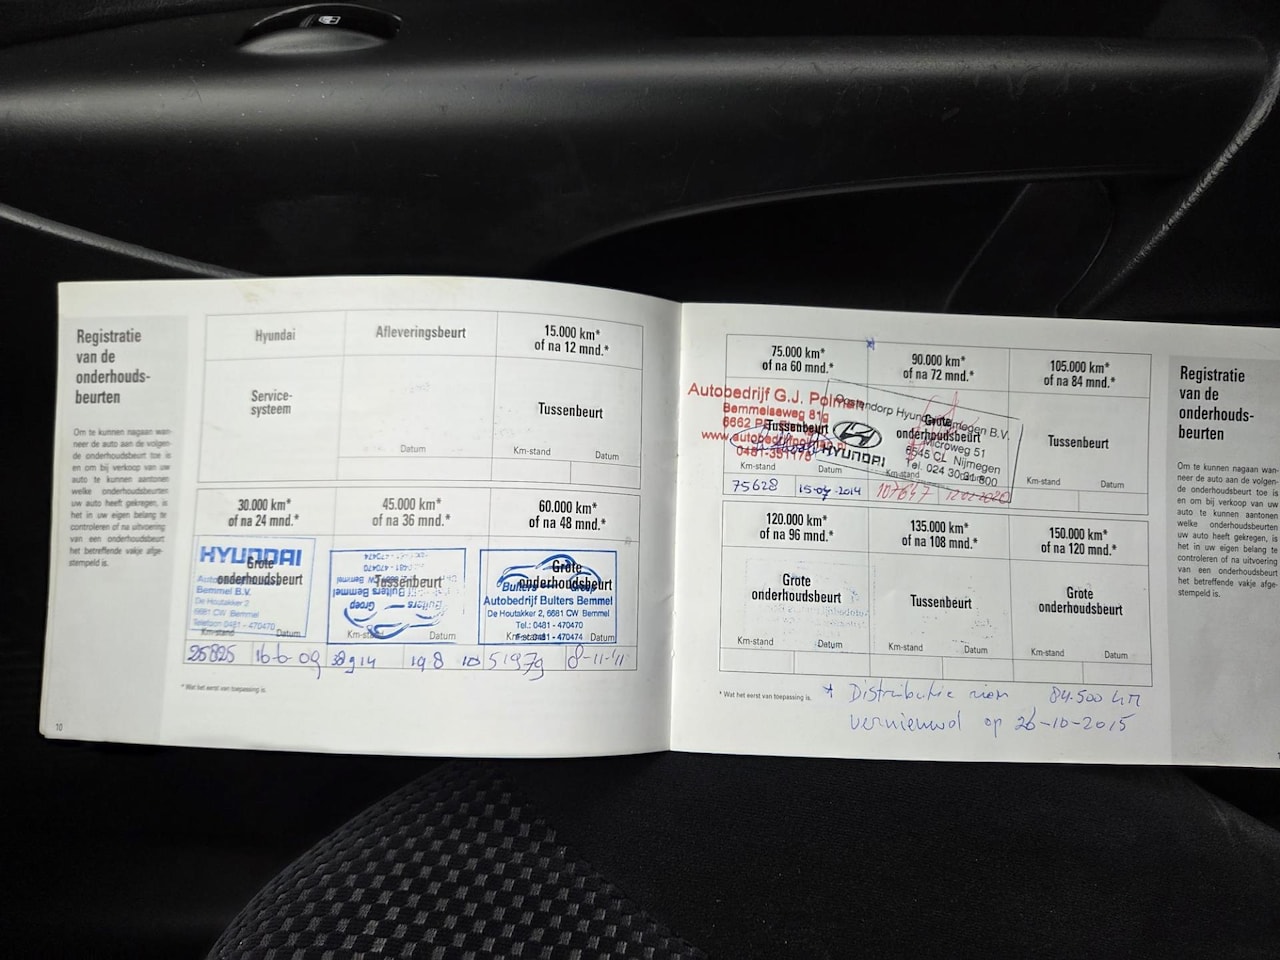 Registratie
van de
onderhouds-
beurten
Om te kunnen nagaan wan-
neer de auto aan de volgen-
de onderhoudsbeurt toe is
en om bij verkoop van uw
auto te kunnen aantonen
welke onderhoudsbeurten
uw auto heeft gekregen, is
het in uw eigen belang te
controleren of na uitvoering
van een onderhoudsbeurt
het betreffende vakje afge-
stempeld is.
10
Hyundai
Service-
systeem
Afleveringsbeurt
Datum
15.000 km*
of na 12 mnd.*
Tussenbeurt
Km-stand Datum
30.000 km*
of na 24 mnd.*
HYUNDAI
Grote
onderhoudsbeurt
Bemmel B.V.
De Houtakker 2
6681 CW Bemmel
Telefoon 0481 - 470470
Km-stand Datum
25825 16-6-09
45.000 km*
of na 36 mnd.*
Tussenbeurt
Bulters Bemmel
Bulters Groep
Km-stand Datum
38914 19 8 10
60.000 km*
of na 48 mnd.*
Grote
onderhoudsbeurt
Bulters Groep
Autobedrijf Bulters Bemmel
De Houtakker 2, 6681 CW Bemmel
Tel.: 0481 - 470470
Fax: 0481 - 470474
Km-stand Datum
51979 8-11-'11
* Wat het eerst van toepassing is.
75.000 km*
of na 60 mnd.*
Autobedrijf G.J. Polman
Bemmelseweg 81g
6662 P
Tussenbeurt
www.autobedrijfpolman.n
0481-351176
Km-stand Datum
75628 15-04-2014
*
90.000 km*
of na 72 mnd.*
Oostendorp Hyundai Nijmegen B.V.
Grote
onderhoudsbeurt
Microweg 51
6545 CL Nijmegen
HYUNDAI
Km-stand Datum
107647 12-02-2020
105.000 km*
of na 84 mnd.*
Tussenbeurt
Km-stand Datum
120.000 km*
of na 96 mnd.*
Grote
onderhoudsbeurt
Km-stand Datum
135.000 km*
of na 108 mnd.*
Tussenbeurt
Km-stand Datum
150.000 km*
of na 120 mnd.*
Grote
onderhoudsbeurt
Km-stand Datum
* Wat het eerst van toepassing is.
* Distributie riem 84.500 km
vernieuwd op 26-10-2015
Registratie
van de
onderhouds-
beurten
Om te kunnen nagaan wan-
neer de auto aan de volgen-
de onderhoudsbeurt toe is
en om bij verkoop van uw
auto te kunnen aantonen
welke onderhoudsbeurten
uw auto heeft gekregen, is
het in uw eigen belang te
controleren of na uitvoering
van een onderhoudsbeurt
het betreffende vakje afge-
stempeld is.